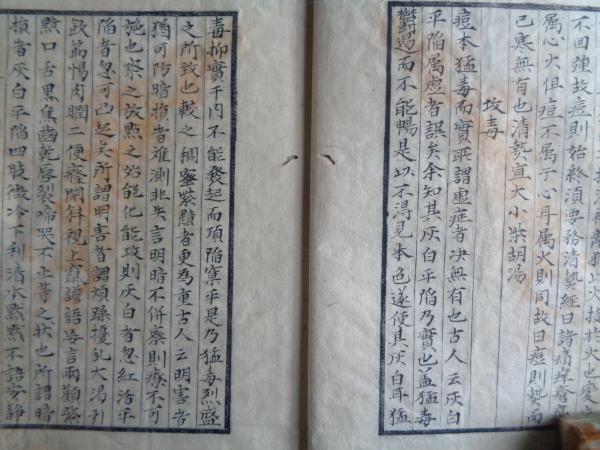 不回彈故痘則始終須要務清熱經曰諸痛痒瘡
屬心火俱痘不屬于心耳屬火則同故曰痘則熱而
已寒無有也清熱宜大小柴胡湯
攻毒
痘本猛毒而實耿謂虛症者決無有也古人云灰白
平陷属虛者誤矣余知其灰白平陷乃實也盖猛毒
鬱遏而不能暢是以不得見本色遂使其灰白耳猛
毒抑實于内不能發起而頂陷窠平是乃猛毒烈盛
之所致也較之稠蜜紫黯者更為重古人云明害者
猶可防暗損者难測非失言明暗不併察則療不可
施也察之放點之始能化能攻則灰白者忽紅活平
陷者忽可凸起矣所謂明害者謂煩躁擾乱大渴引
飲筋惕肉瞤二便癃閉斜視上竄譫語妄言兩顴𤼵
㸃口舌黒焦齒乾唇裂啼哭不止等之状也所謂暗
損者灰白平陷四肢微冷下利清水黙黙不語安静